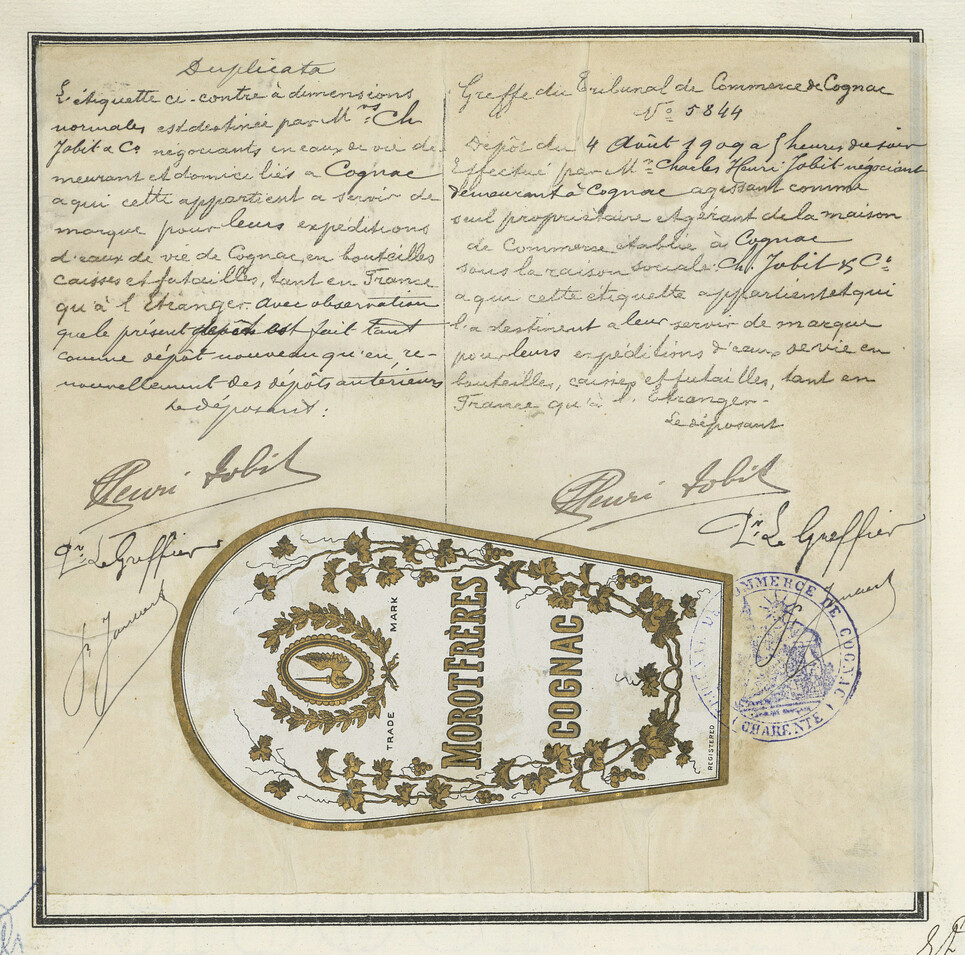 Duplicata
L'étiquette ci-contre à dimensions
normales est destinée par Mrs Ch
Jobit & Co négociants en eaux de vie de-
meurant et domiciliés à Cognac
a qui cette appartient a servir de
marque pour leurs expéditions
d'eaux de vie de Cognac, en bouteilles
caisses et futailles, tant en France
qu'à l'Etranger. Avec observation
que le présent dépôt est fait tant
comme dépôt nouveau qu'en re-
nouvellement des dépôts antérieurs
Le déposant:
Henri Jobit
Pr Le Greffier
Greffe du Tribunal de Commerce de Cognac
No 5844
Dépôt du 4 Août 1909 à 5 heures du soir
Effectué par Mr Charles Henri Jobit négociant
demeurant à Cognac agissant comme
seul propriétaire et gérant de la maison
de Commerce établie à Cognac
sous la raison sociale. Ch. Jobit & Co
a qui cette étiquette appartient et qui
l'a destinent a leur servir de marque
pour leurs expéditions d'eaux de vie en
bouteilles, caisses et futailles, tant en
France qu'à l'Etranger-
Le déposant
Henri Jobit
Pr Le Greffier
TRADE MARK
MOROT FRÈRES
COGNAC
REGISTERED
COMMERCE DE COGNAC
(CHARENTE)